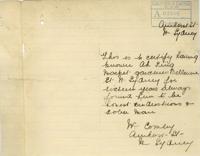 Amherst St
N Sydney
This is to certify having
known Ah Ling
Market gardener Bellevue
St N Sydney for
sixteen years always
found him to be
honest industrious &
sober man
W Comley
Amherst St
N Sydney